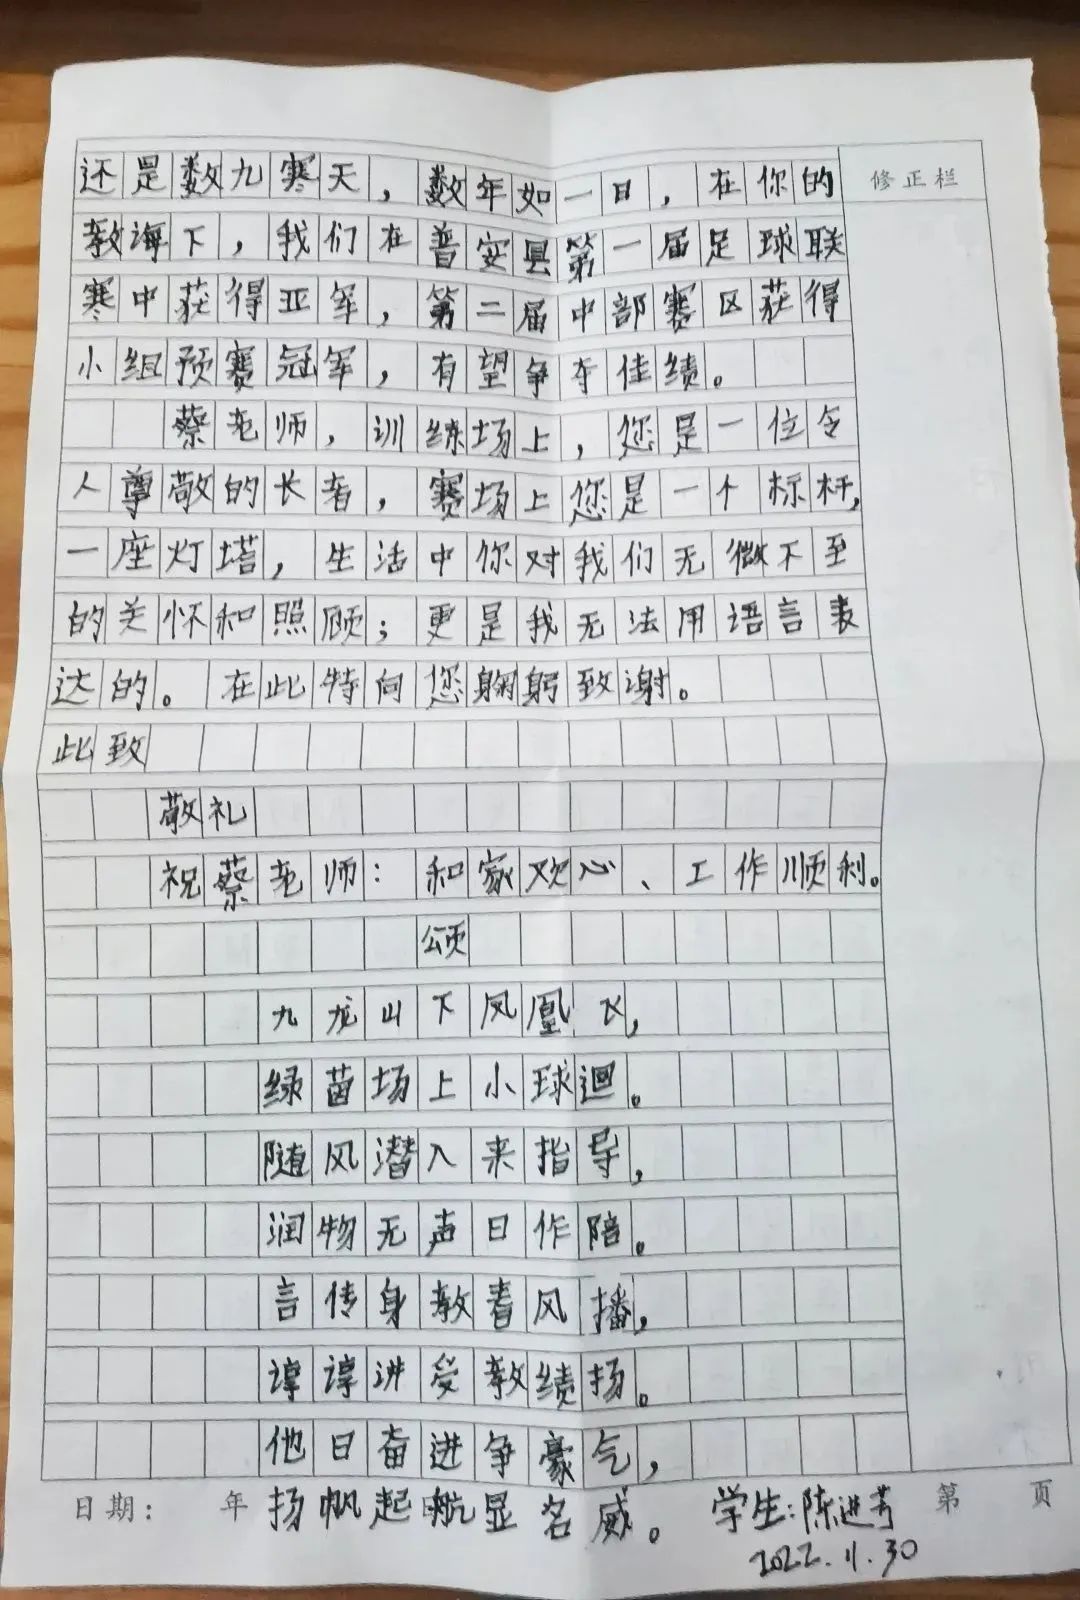 还是数九寒天，数年如一日，在你的
修正栏
教诲下，我们在普安县第一届足球联
寒中获得亚军，第二届中部赛区获得
小组预赛冠军，有望争夺佳绩。
蔡老师，训练场上，您是一位令
人尊敬的长者，赛场上您是一个标杆，
一座灯塔，生活中你对我们无微不至
的关怀和照顾；更是我无法用语言表
达的。在此特向您鞠躬致谢。
此致
敬礼
祝蔡老师：和家欢心、工作顺利。
颂
九龙山下凤凰飞，
绿茵场上小球迴。
随风潜入来指导，
润物无声日作陪。
言传身教春风播，
谆谆讲受教绩扬。
他日奋进争豪气，
日期： 年 扬帆起航显名威。 学生：陈进 第 页
2022.11.30